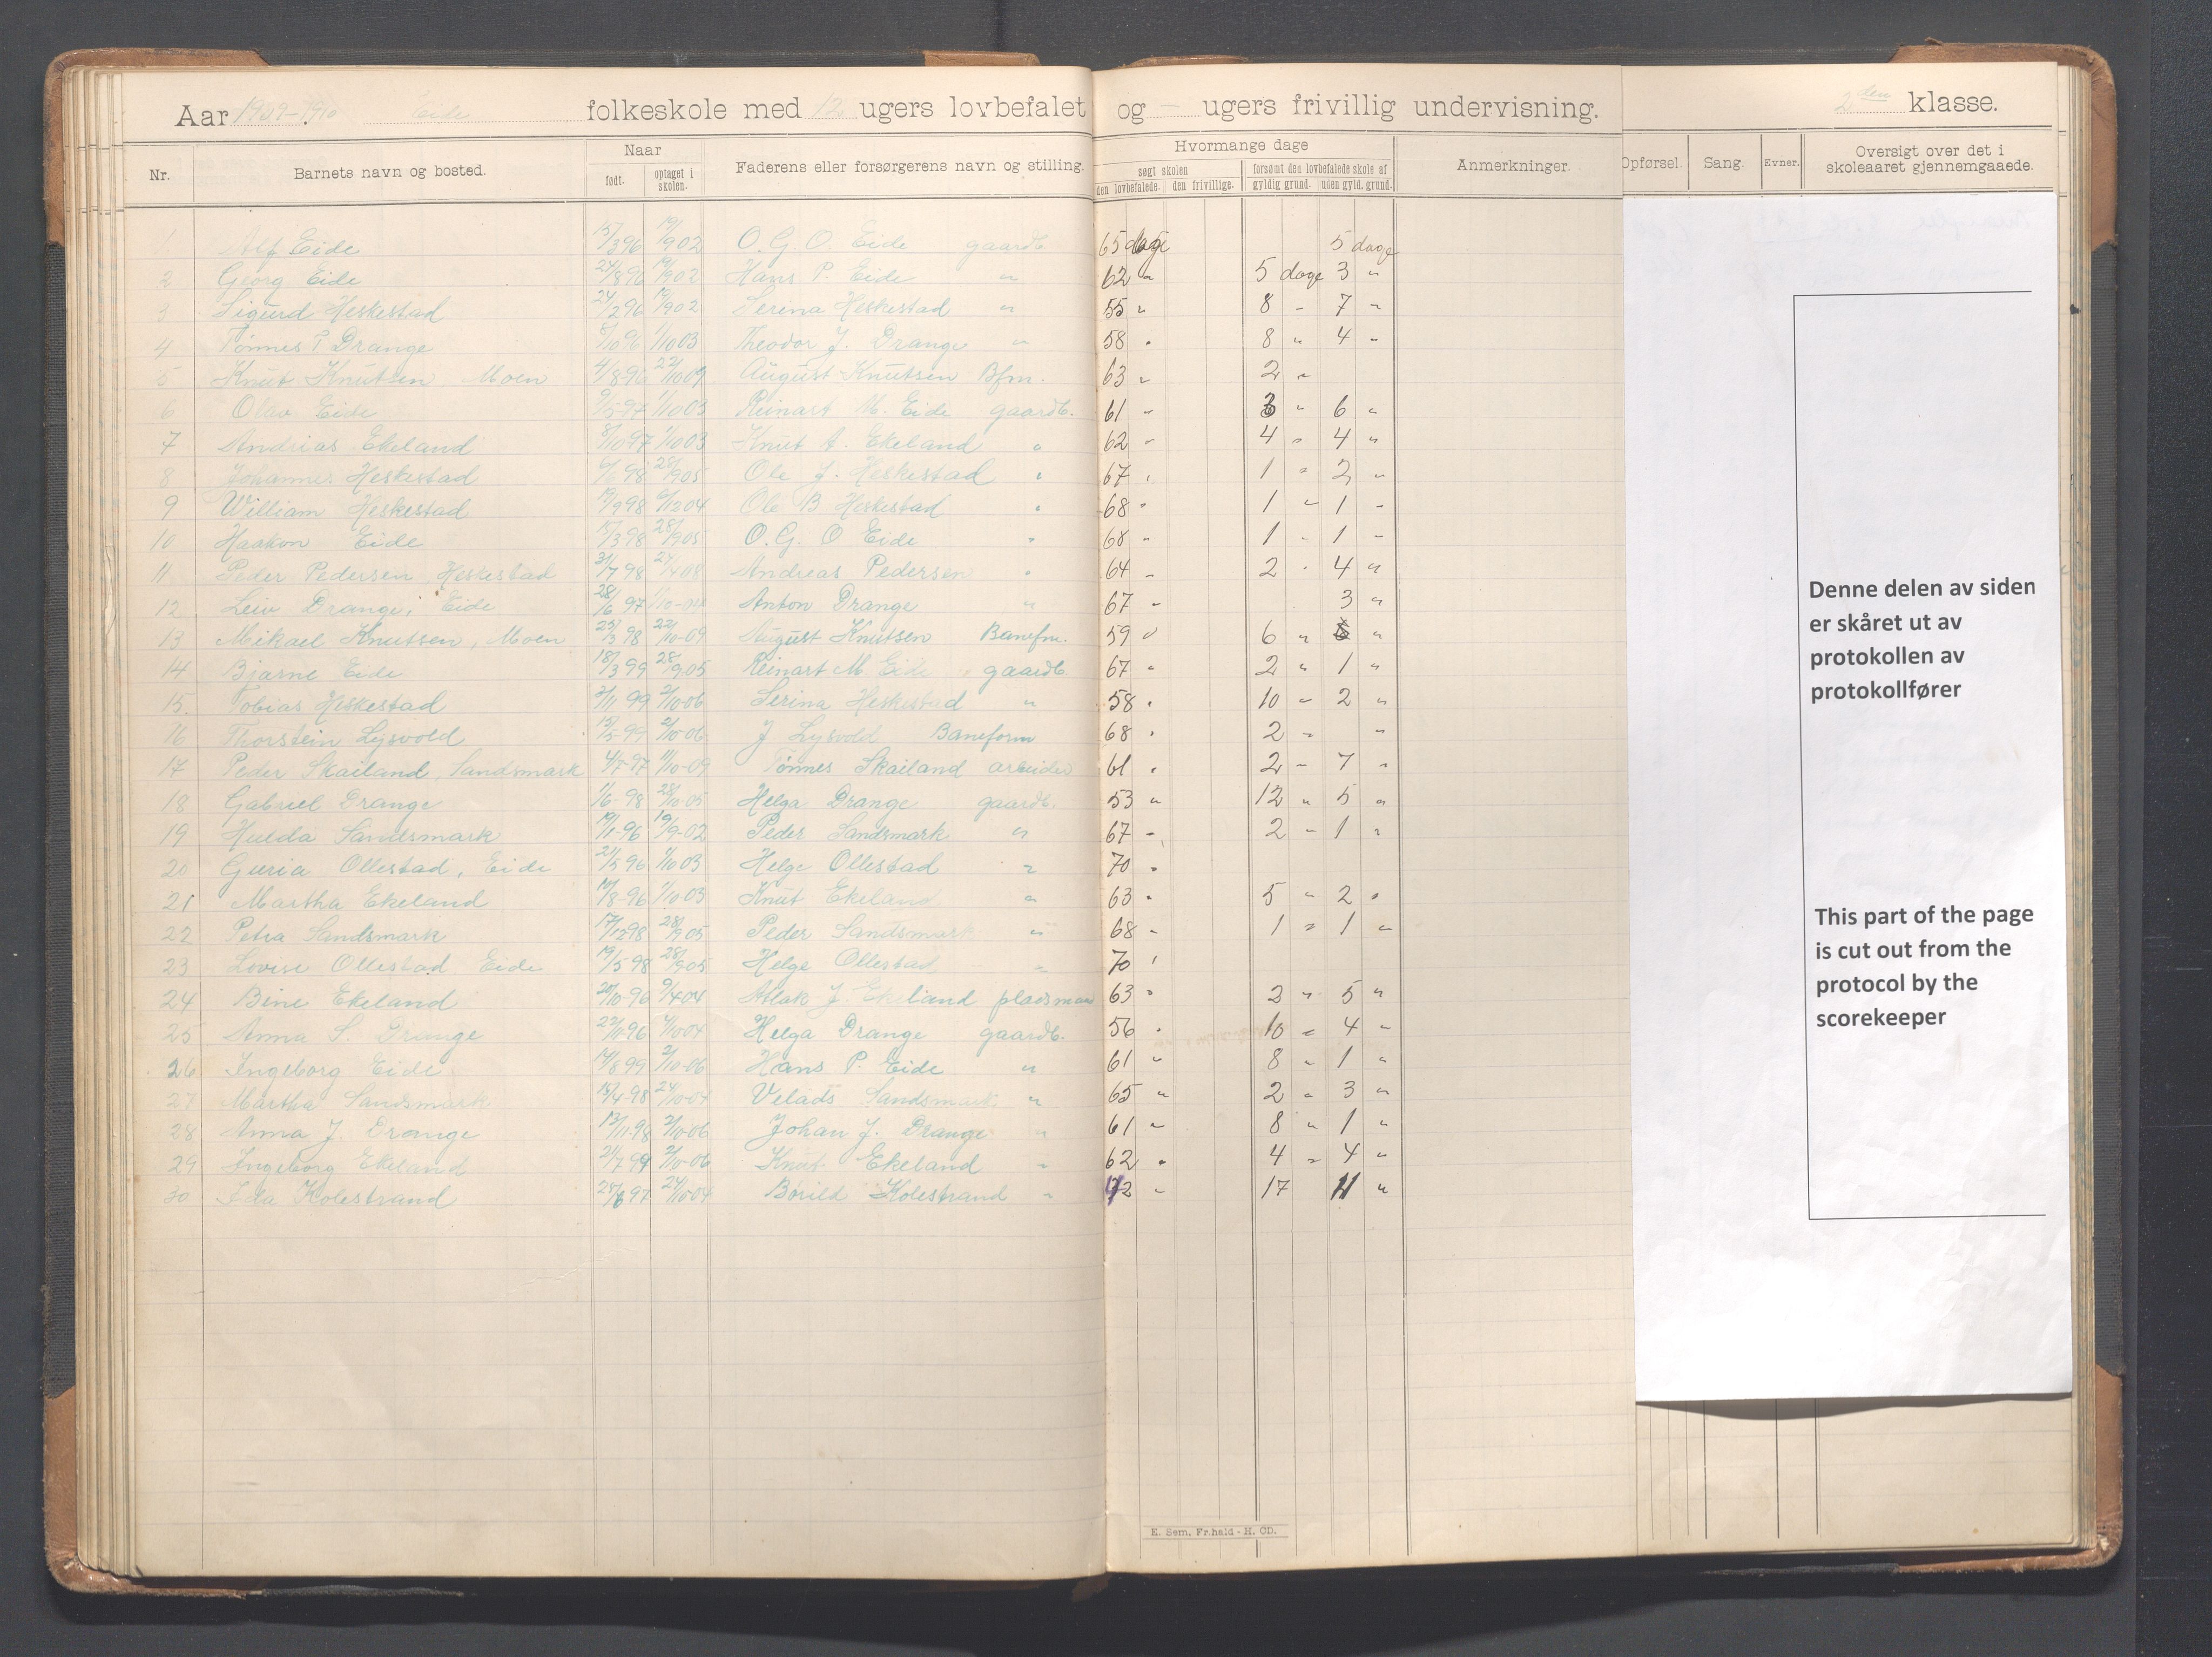 Aar 1909-1910. Eide folkeskole med 12 ugers lovbefalet og — ugers frivillig undervisning. 2den klasse.
Nr. Barnets navn og bosted. Naar født. optaget i skolen. Faderens eller forsørgerens navn og stilling. Hvormange dage søgt skolen den lovbefalede. den frivillige. forsømt den lovbefalede skole af gyldig grund. uden gyld. grund. Anmerkninger. Opførsel. Sang. Evner. Oversigt over det i skoleaaret gjennemgaaede.
1 Alf Eide 15/3 96 19/9 02 O. G. O. Eide gaardb. 65 dage 5 dage
2 Georg Eide 24/8 96 19/9 02 Hans P. Eide " 62 " 5 dage 3 "
3 Sigurd Heskestad 24/2 96 19/9 02 Serina Heskestad " 55 " 8 " 7 "
4 Tønnes T Drange 8/10 96 1/10 03 Theodor J. Drange " 58 " 8 " 4 "
5 Knut Knutsen Moen 4/8-96 22/10 09 August Knutsen Bfm. 63 " 2 "
6 Olav Eide 9/5-97 1/10 03 Reinart M. Eide gaardb. 61 " 3 " 6 "
7 Andrias Ekeland 8/10 97 1/10 03 Knut A. Ekeland " 62 " 4 " 4 "
8 Johannes Heskestad 6/6 98 28/9 05 Ole J. Heskestad " 67 " 1 " 2 "
9 William Heskestad 19/9 98 6/12 04 Ole B Heskestad " 68 " 1 " 1 "
10 Haakon Eide 15/3 98 28/9 05 O. G. O Eide " 68 " 1 " 1 "
11 Peder Pedersen Heskestad 31/7 98 24/4 08 Andreas Pedersen " 64 " 2 " 4 "
12 Leiv Drange, Eide 28/6 97 1/10-04 Anton Drange " 67 " 3 "
13 Mikael Knutsen, Moen 25/3 98 22/10-09 August Knutsen Banefm. 59 " 6 " 5 "
14 Bjarne Eide 18/3 99 28/9 05 Reinart M. Eide gaardb. 67 " 2 " 1 "
15. Tobias Heskestad 2/11 99 2/10-06 Serina Heskestad " 58 " 10 " 2 "
16 Thorstein Lysvold 15/5-99 2/10-06 J Lysvold Baneform 68 " 2 " "
17 Peder Skailand, Sandsmark 4/7-97 11/10-09 Tønnes Skailand arbeider 61 " 2 " 7 "
18 Gabriel Drange 1/6-98 28/10-05 Helga Drange gaardb. 53 " 12 " 5 "
19 Hulda Sandsmark 19/1-96 19/9-02 Peder Sandsmark " 67 " 2 " 1 "
20 Guria Ollestad, Eide 21/5 96 1/10 03 Helge Ollestad " 70 "
21 Martha Ekeland 10/8-96 1/10-03 Knut Ekeland " 63 " 5 " 2 "
22 Petra Sandsmark 17/12 98 28/9 05 Peder Sandsmark " 68 " 1 " 1 "
23 Lovise Ollestad Eide 19/5 98 28/9 05 Helge Ollestad " 70 "
24 Bine Ekeland 20/10-96 9/4 04 Atlak J. Ekeland pladsmand 63 " 2 " 5 "
25 Anna S. Drange 22/11-96 4/10 04 Helga Drange gaardb. 56 " 10 " 4 "
26 Ingeborg Eide 14/8 99 2/10-06 Hans P. Eide " 61 " 8 " 1 "
27 Martha Sandsmark 15/4-98 24/10-04 Velads Sandsmark " 65 " 2 " 3 "
28 Anna J. Drange 13/11-98 2/10-06 Johan J. Drange " 61 " 8 " 1 "
29 Ingeborg Ekeland 21/7 99 2/10-06 Knut Ekeland " 62 " 4 " 4 "
30 Ida Kolestrand 28/6 97 24/10-04 Børild Kolestrand " 42 " 17 11 "
Denne delen av siden
er skåret ut av
protokollen av
protokollfører
This part of the page
is cut out from the
protocol by the
scorekeeper
E. Sem, Fr.hald - H. CD.